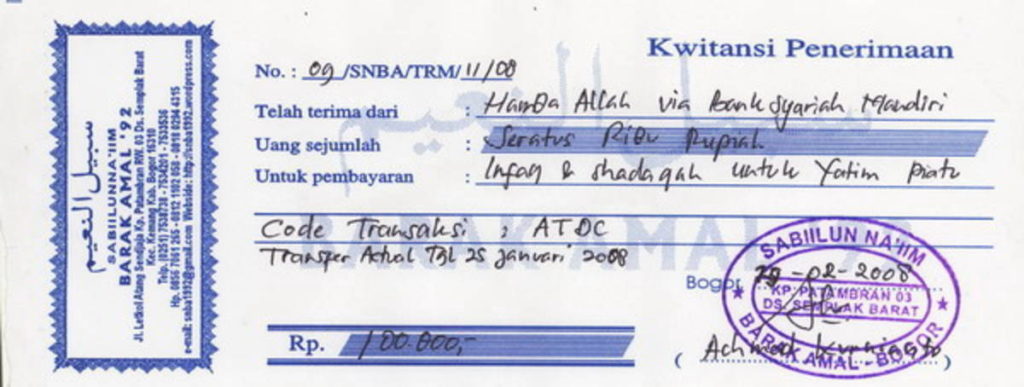 سبيل النعيم
SABIILUNNA'IIM
BARAK AMAL '92
Jl. Letkol Atang Sendjaja Kp. Patambran RW. 03 Ds. Semplak Barat
Kec. Kemang Kab. Bogor 16310
Telp. (0251) 7538738 - 7534201 - 7533536
Hp. 0856 7061 265 - 0812 1102 058 - 0818 0294 4315
e-mail: snba1992@gmail.com Webside: http://snba1992.wordpress.com
Kwitansi Penerimaan
No. : 09 /SNBA/TRM/ 11/08
Telah terima dari : Hamba Allah via Bank Syariah Mandiri
Uang sejumlah : Seratus Ribu Rupiah
Untuk pembayaran : Infaq & shadaqah untuk Yatim Piatu
Code Transaksi : ATDC
Transfer Actual Tgl 25 januari 2008
BARAK AMAL '92
Bogor, 29 -02-2008
SABIILUN NA'IIM
KP. PATAMBRAN 03
DS. SEMPLAK BARAT
BARAK AMAL - BOGOR
Rp. 100.000,-
( Achmad )